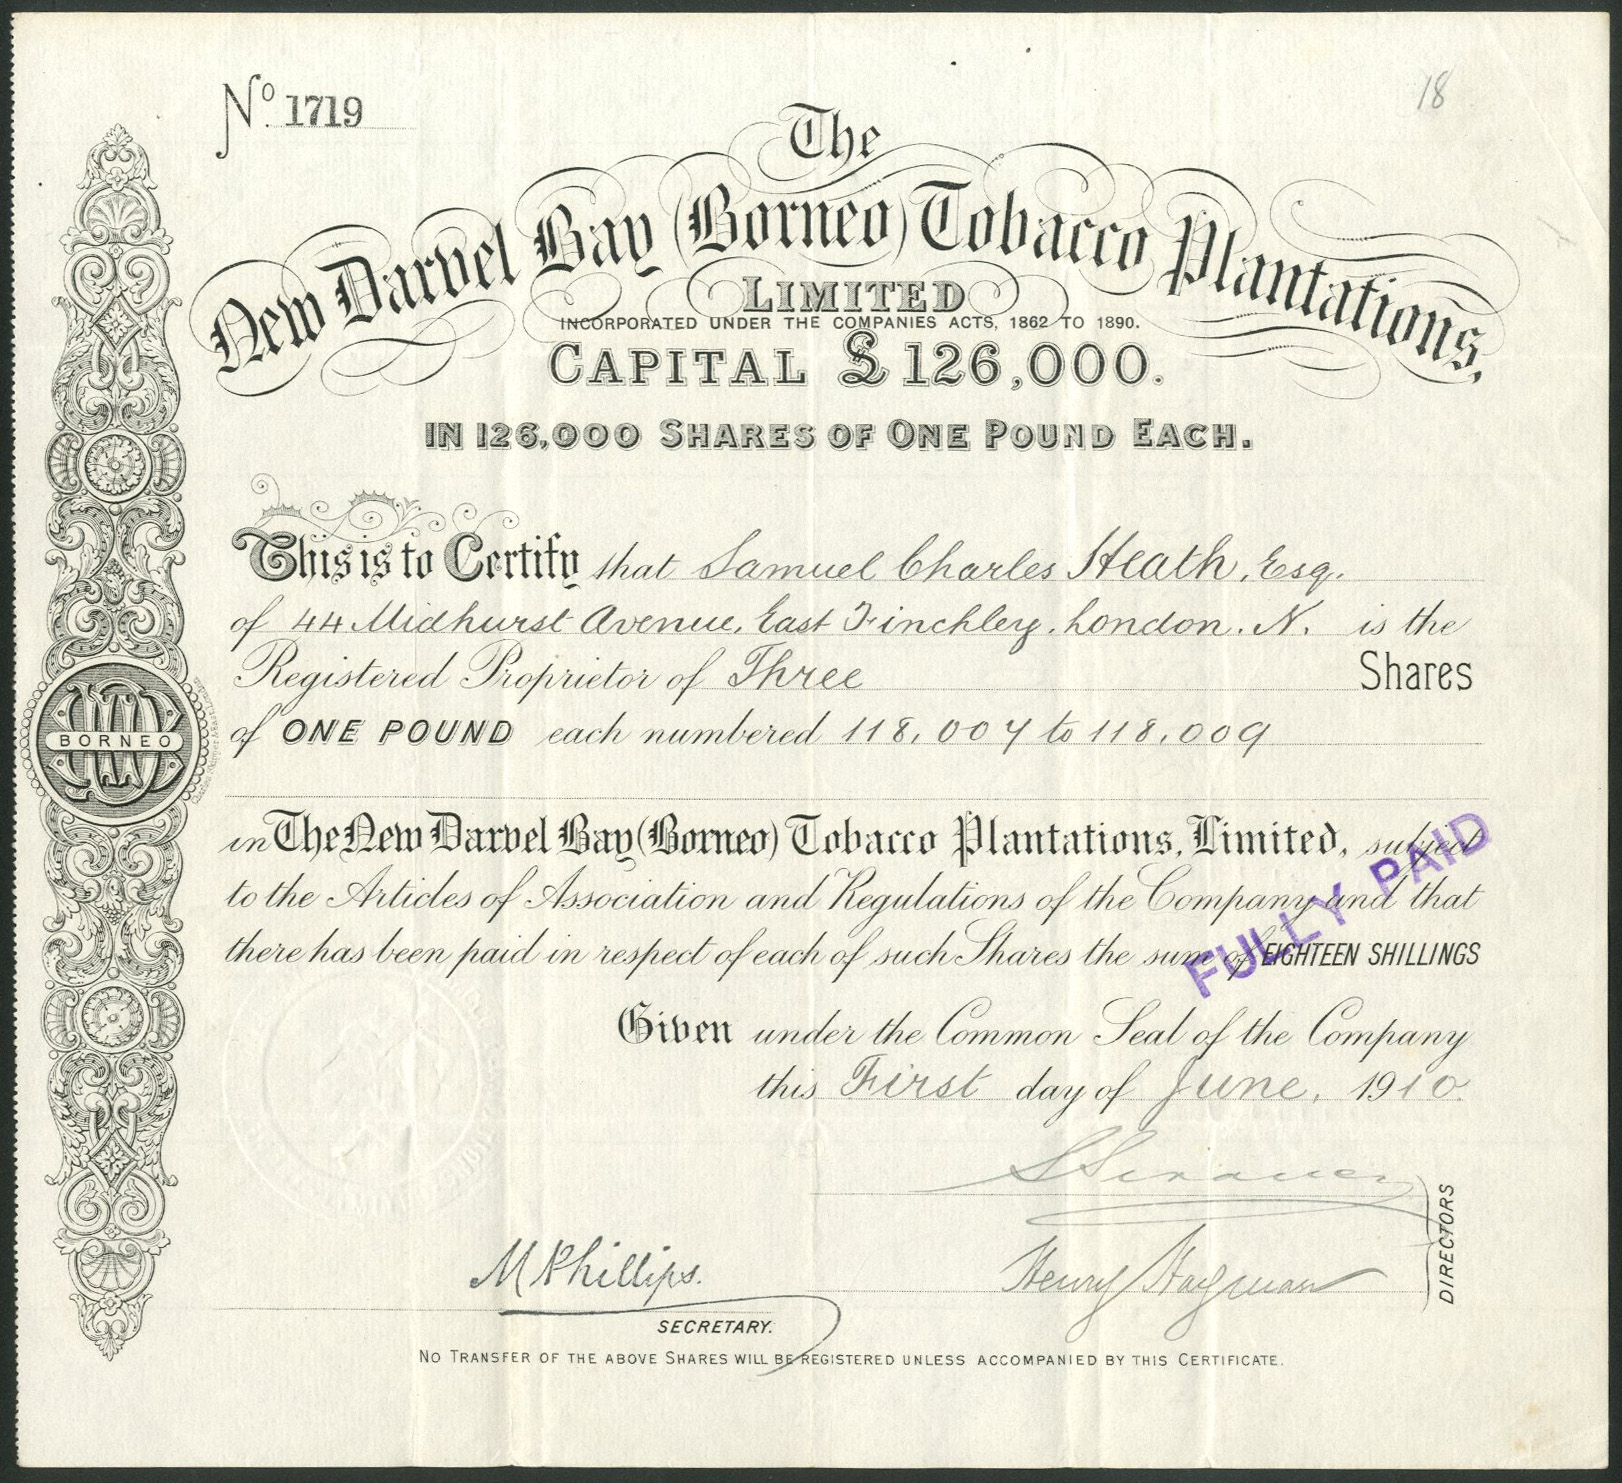 No. 1719
18
The
New Darvel Bay (Borneo) Tobacco Plantations,
LIMITED
INCORPORATED UNDER THE COMPANIES ACTS, 1862 TO 1890.
CAPITAL £126,000.
IN 126,000 SHARES OF ONE POUND EACH.
This is to Certify that Samuel Charles Heath, Esq.
of 44 Midhurst Avenue, East Finchley, London. N. is the
Registered Proprietor of Three Shares
of ONE POUND each numbered 118,007 to 118,009
BORNEO
in The New Darvel Bay (Borneo) Tobacco Plantations, Limited, subject
to the Articles of Association and Regulations of the Company and that
there has been paid in respect of each of such Shares the sum of EIGHTEEN SHILLINGS
FULLY PAID
Given under the Common Seal of the Company
this First day of June, 1910.
DIRECTORS
M Phillips.
Henry
SECRETARY.
NO TRANSFER OF THE ABOVE SHARES WILL BE REGISTERED UNLESS ACCOMPANIED BY THIS CERTIFICATE.